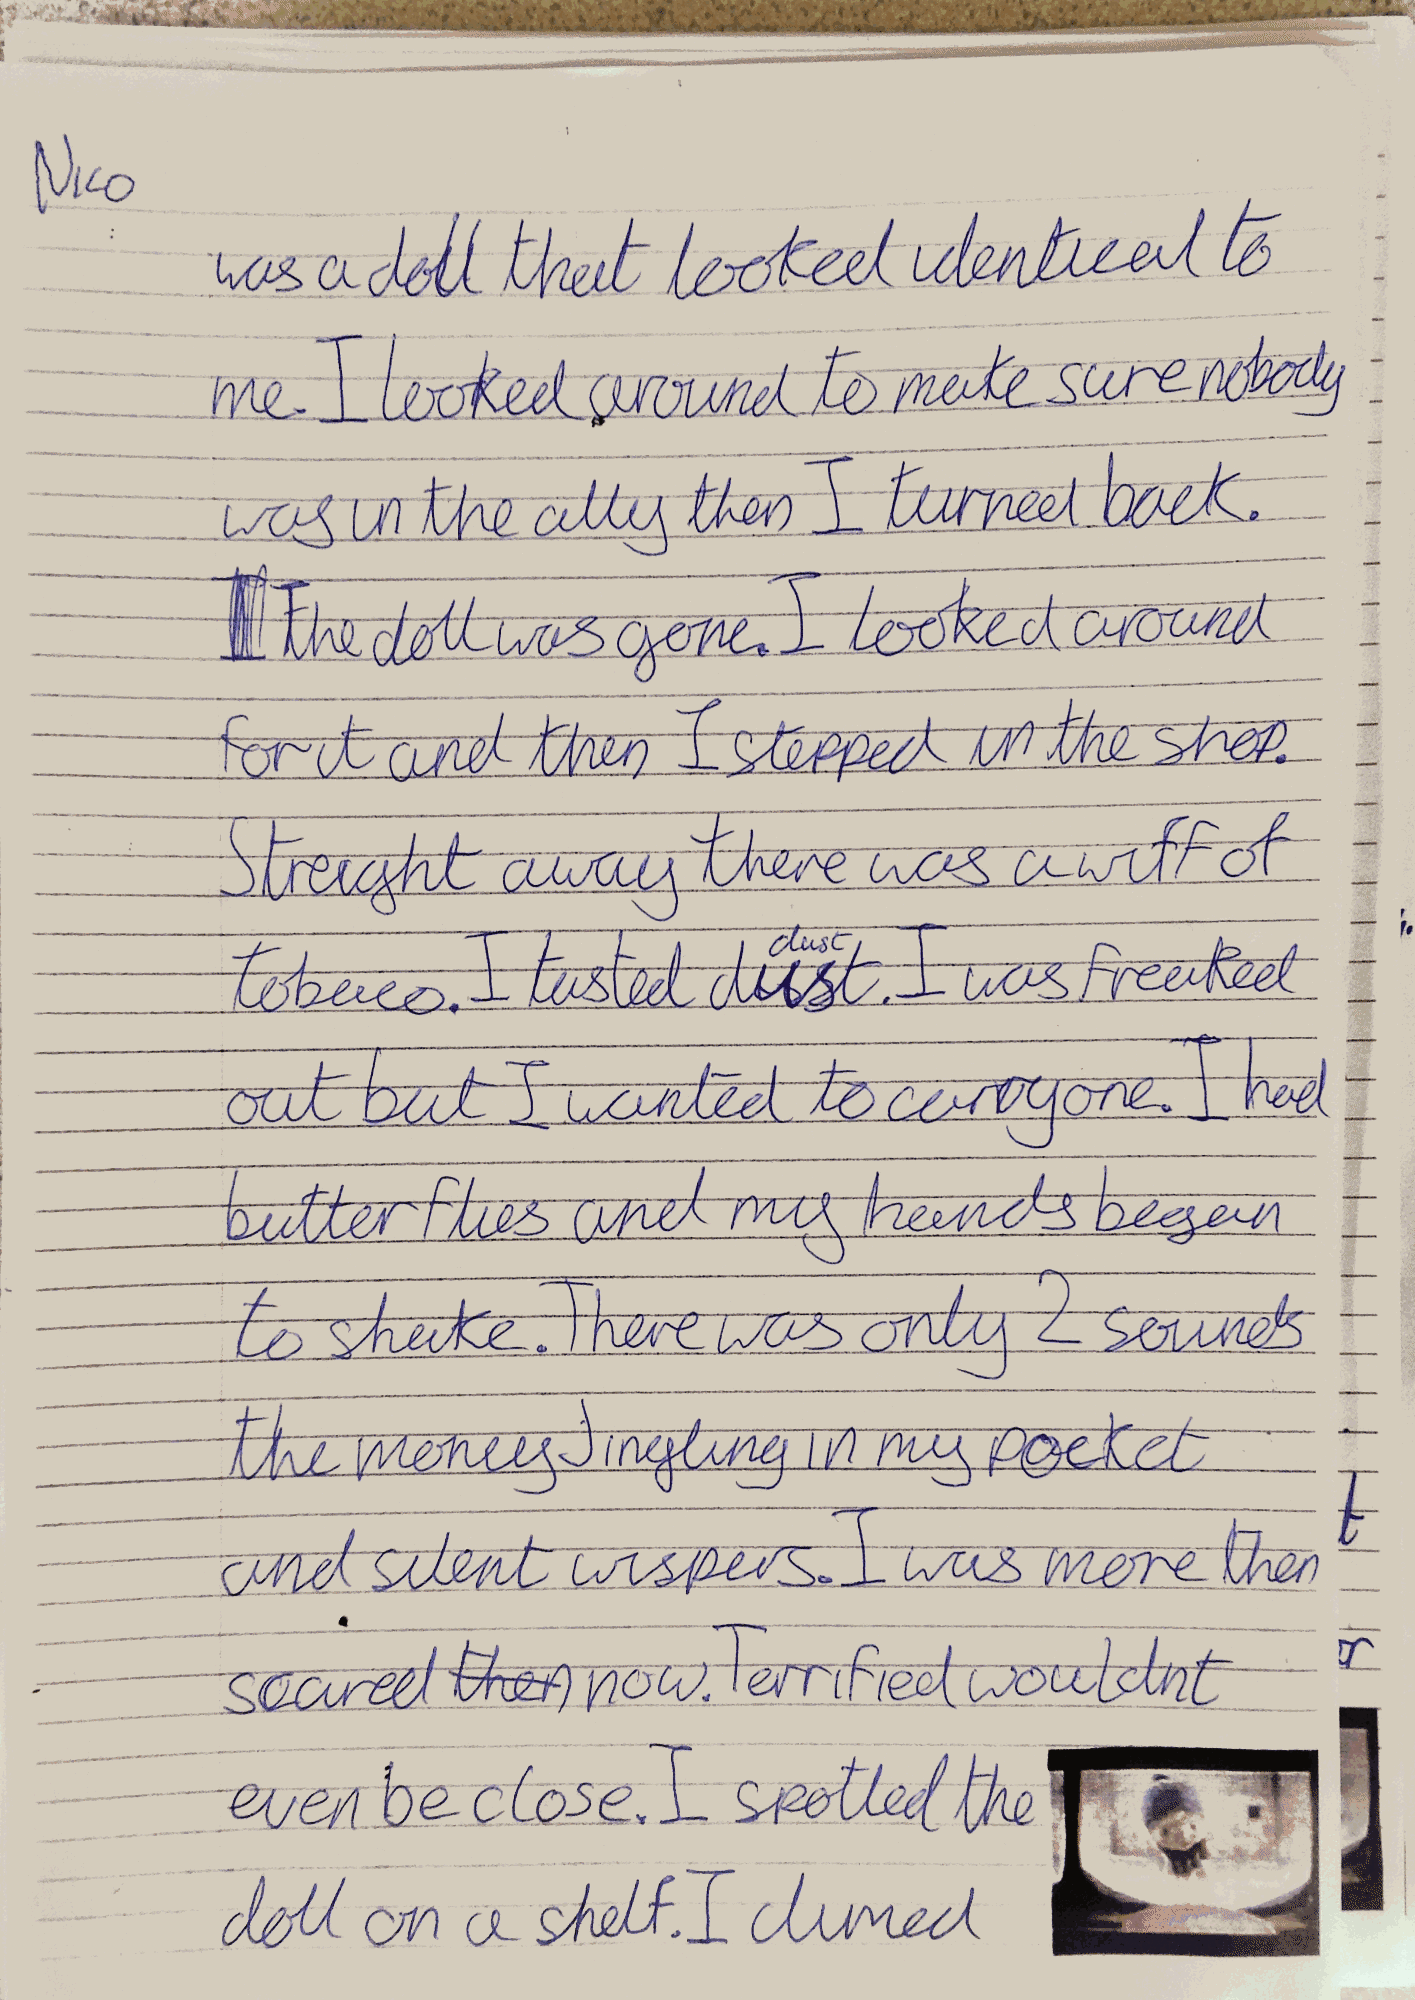 Nico
was a doll that looked identical to
me. I looked around to make sure nobody
was in the ally then I turned back.
The doll was gone. I looked around
for it and then I stepped in the shop.
Streight away there was a wiff of
dust
tobaco. I tasted dust. I was freaked
out but I wanted to carry one. I had
butterflies and my hands began
to shake. There was only 2 sounds
the money Jingling in my pocket
and silent wispers. I was more then
scared then now. Terrified wouldnt
even be close. I spotted the
doll on a shelf. I climed
t
or